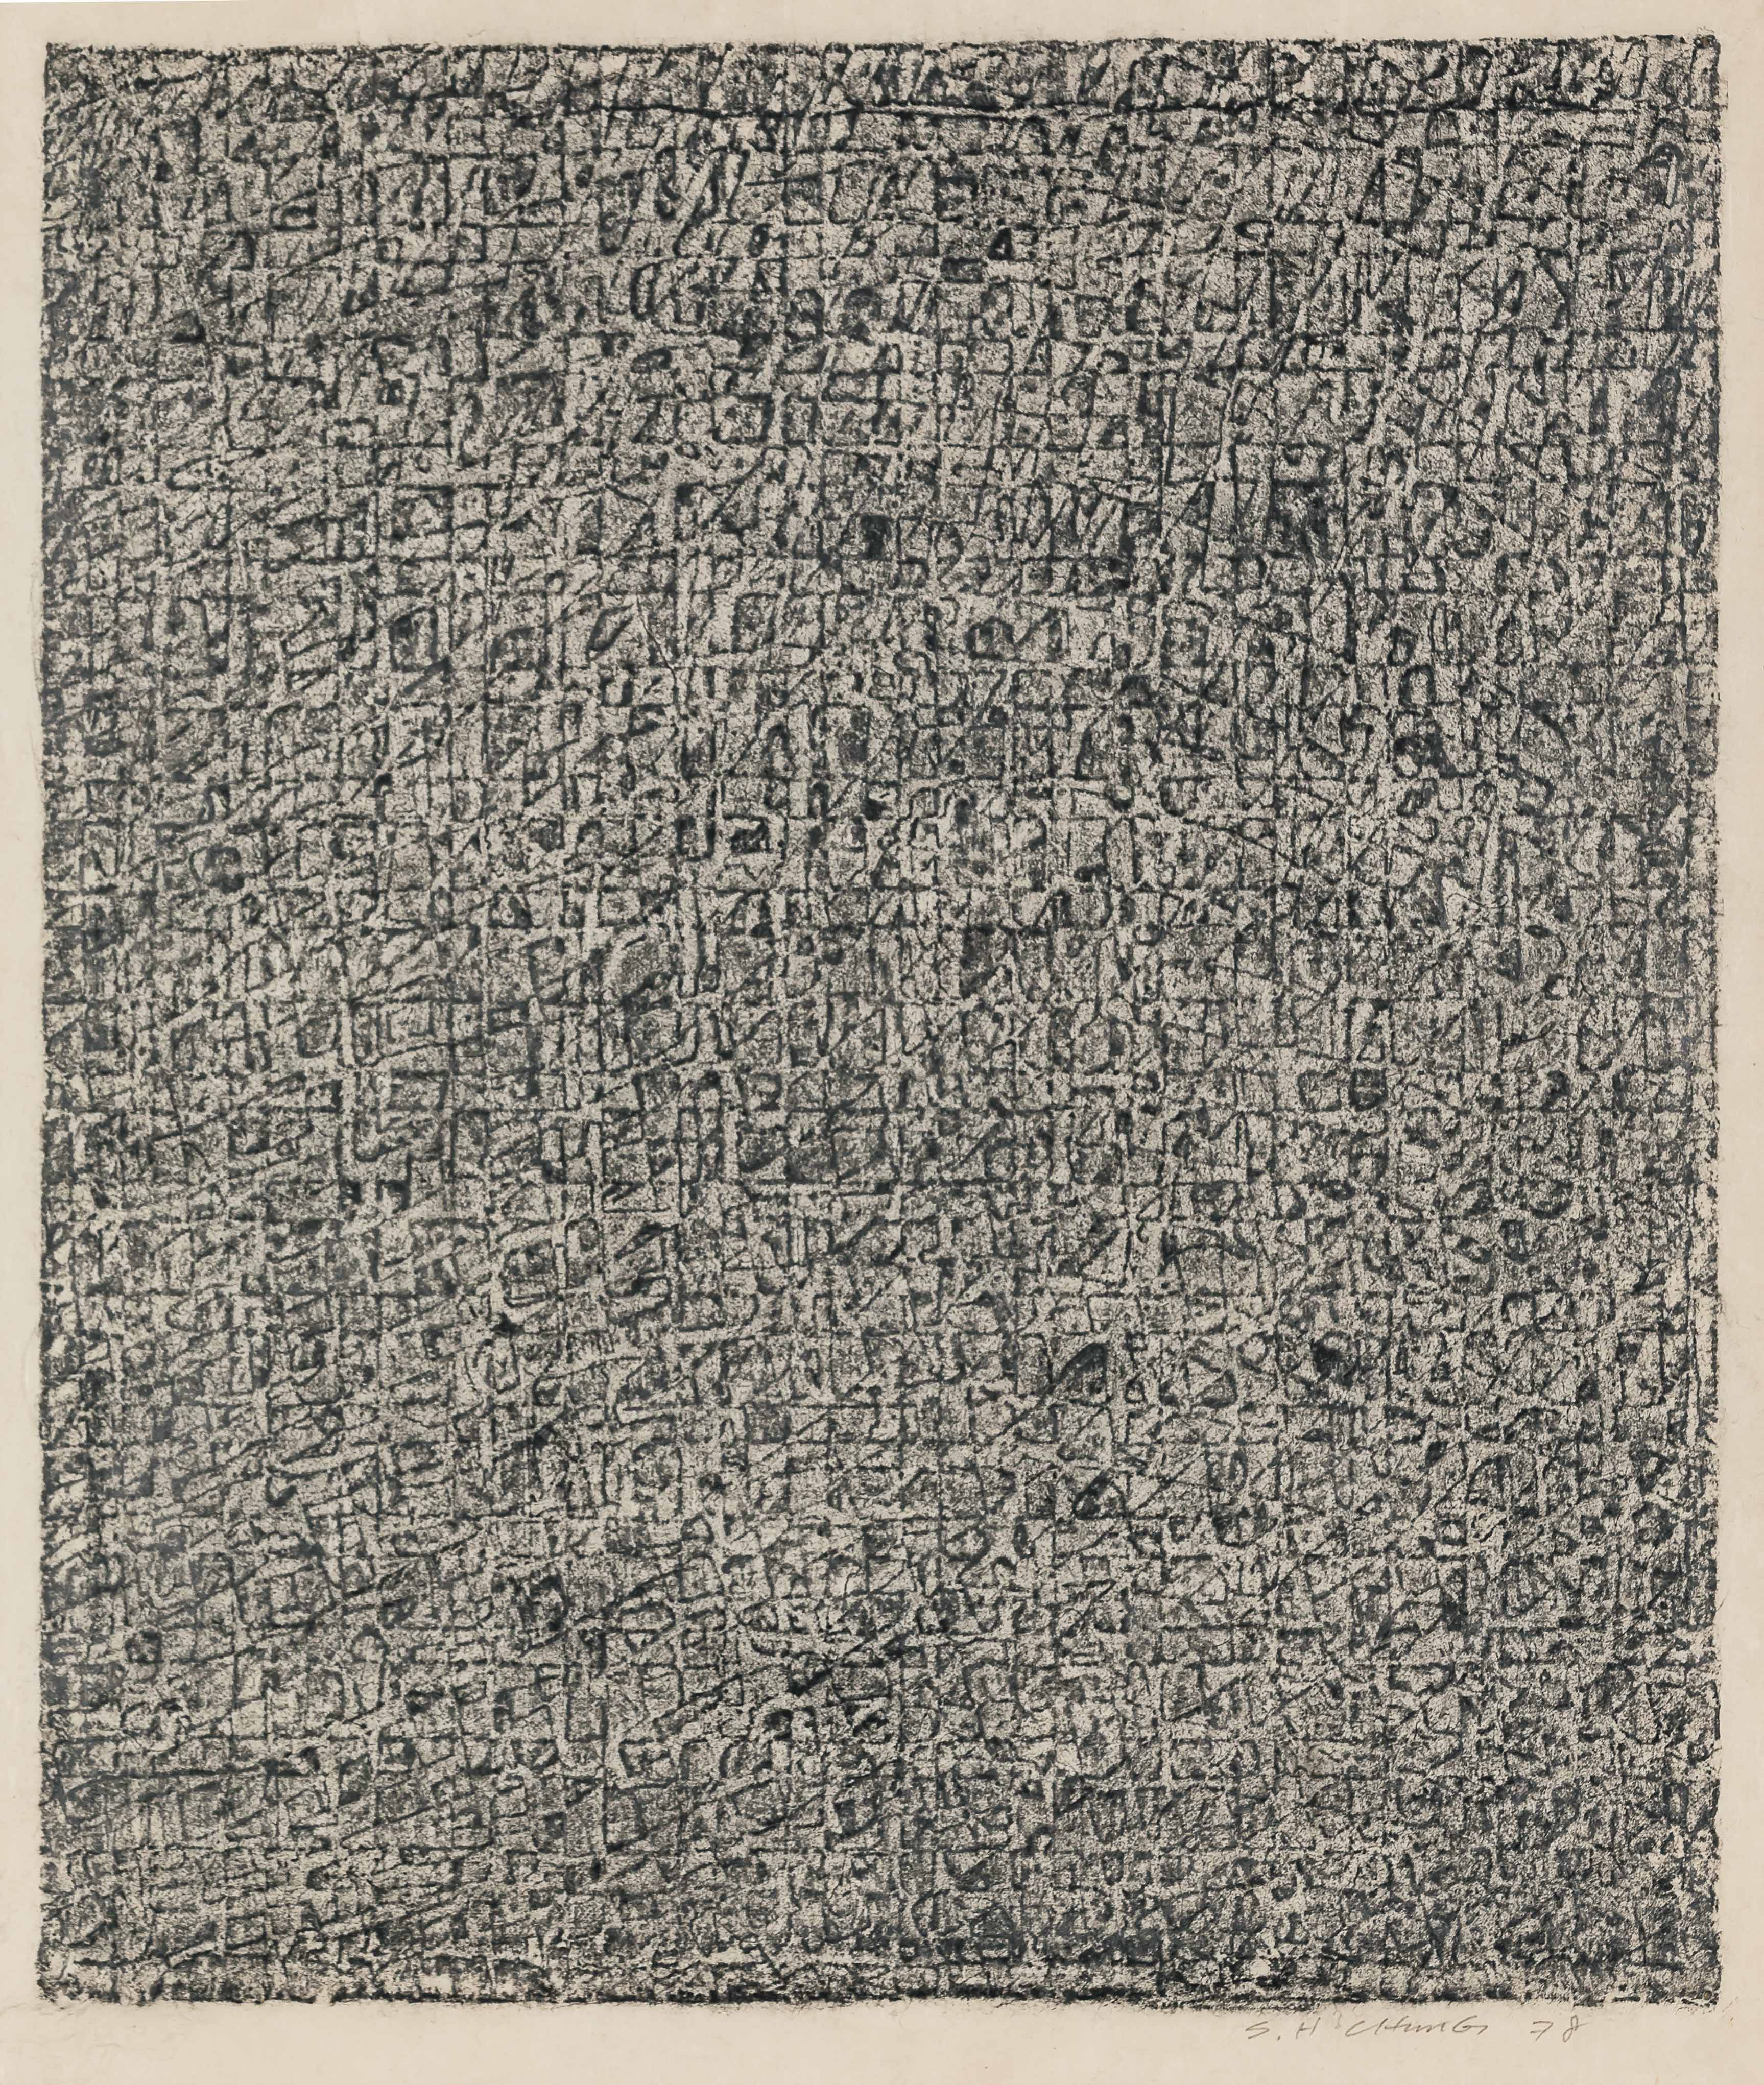 S. H CHUNG 78